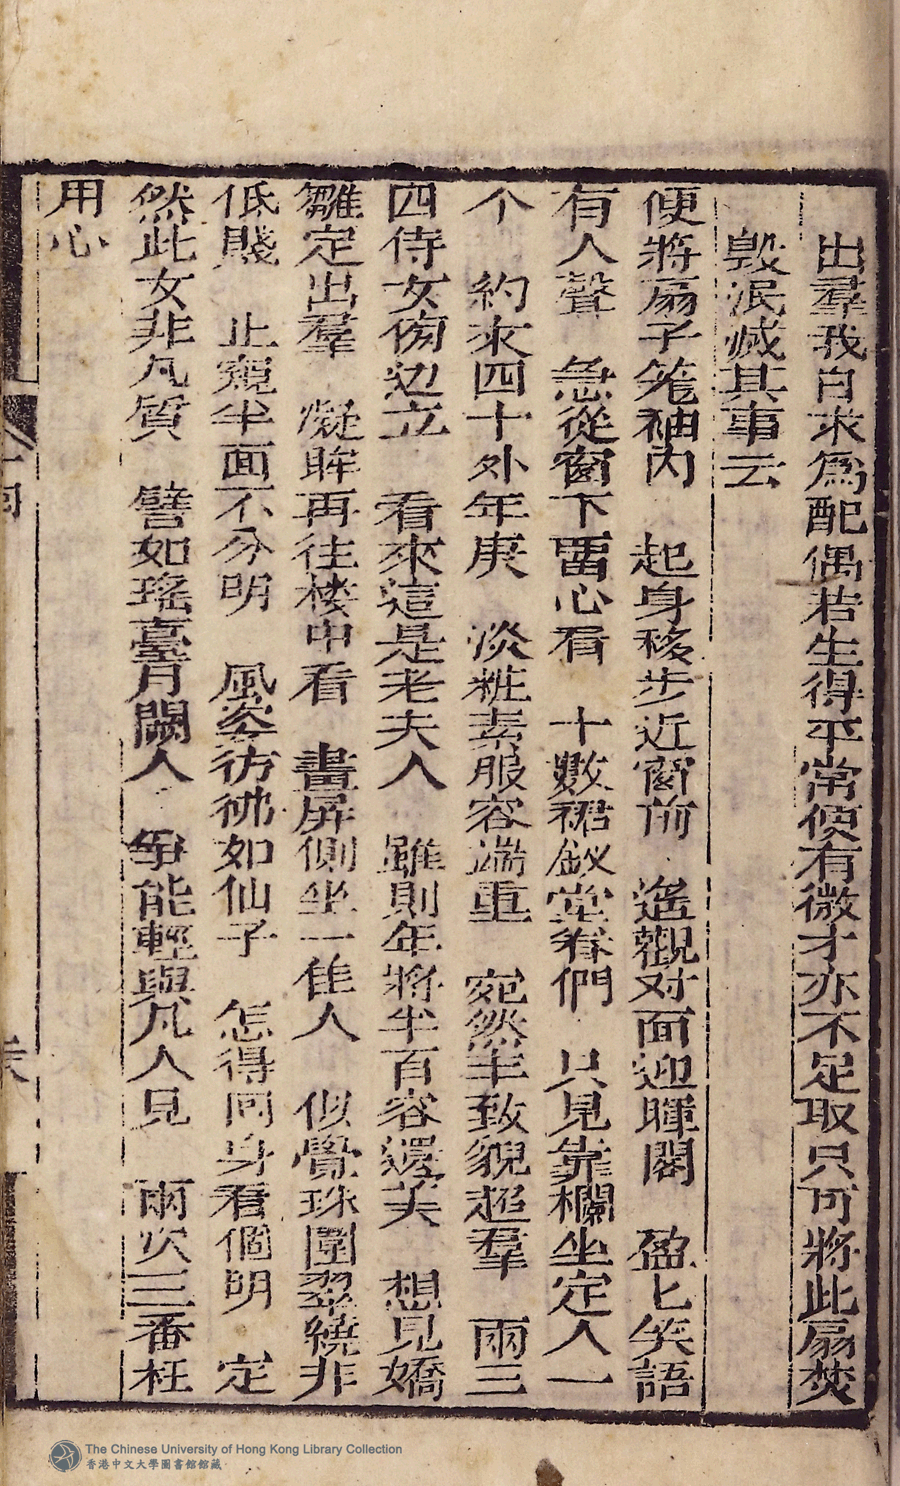 出羣我自求為配偶若生得平常便有微才亦不足取只可將此扇焚
毀泯滅其事云
便將扇子笼袖內　起身移步近窗前　遙觀对面迎暉閣　盈匕笑語
有人聲　急從窗下畱心看　十數裙釵堂眷們　只見靠欄坐定人一
个　約來四十外年庚　淡粧素服容端重　宛然丰致貌超羣　兩三
四侍女傍边立　看來這是老夫人　雖則年將半百容還美　想見嬌
雛定出羣　凝眸再往楼中看　畫屏側坐一佳人　似覺珠圍翠繞非
低賤　止窺半面不分明　風姿彷彿如仙子　怎得囘身看個明　定
然此女非凡質　譬如瑤臺月闕人　爭能輕與凡人見　兩次三番枉
用心
The Chinese University of Hong Kong Library Collection
香港中文大學圖書館館藏